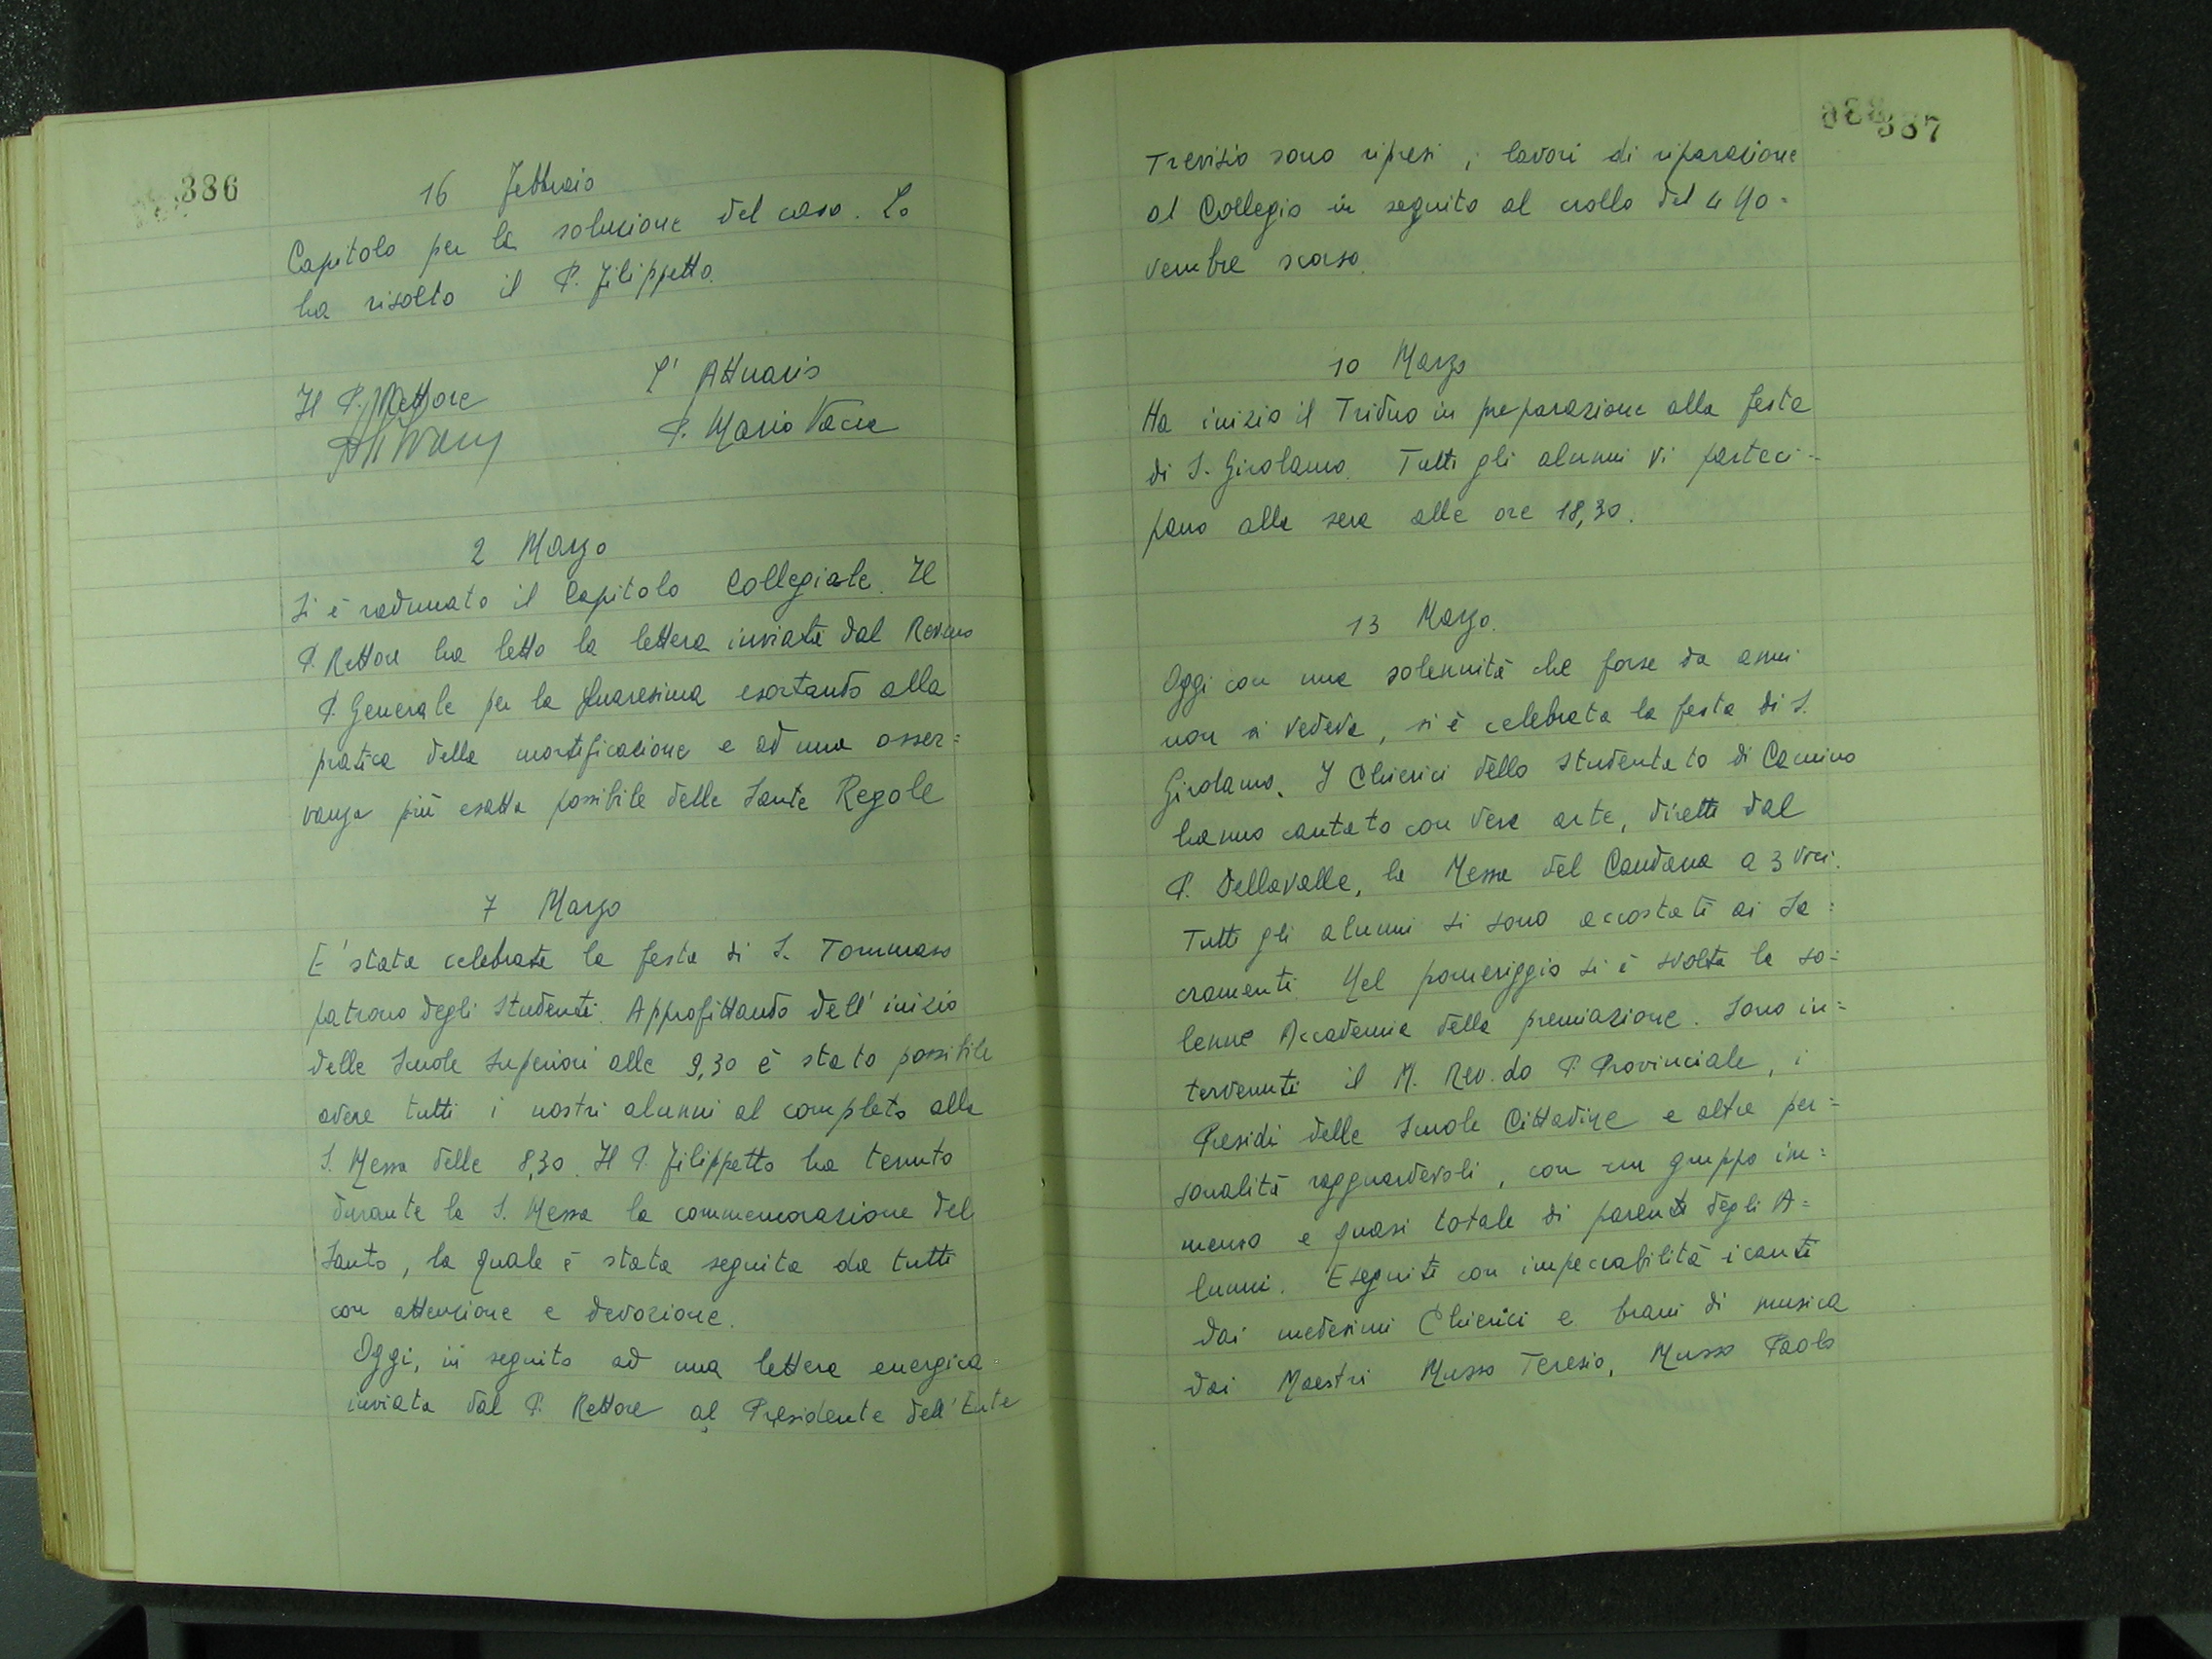 386
16 Febbraio
Capitolo per la soluzione del caso. Lo
ha risolto il P. Filippetto.
Il P. Rettore
L' Attuario
P. Mario Vacca
2 Marzo
Si è radunato il Capitolo Collegiale. Il
P. Rettore ha letto la lettera inviata dal Rev.mo
P. Generale per la Quaresima esortando alla
pratica della mortificazione e ad una osser=
vanza più esatta possibile delle Sante Regole
7 Marzo
E' stata celebrata la festa di S. Tommaso
patrono degli Studenti. Approfittando dell' inizio
delle Scuole Superiori alle 9,30 è stato possibile
avere tutti i nostri alunni al completo alla
S. Messa delle 8,30. Il P. Filippetto ha tenuto
durante la S. Messa la commemorazione del
Santo, la quale è stata seguita da tutti
con attenzione e devozione.
Oggi, in seguito ad una lettera energica
inviata dal P. Rettore al Presidente dell' Ente
387
Trevisio sono ripresi i lavori di riparazione
al Collegio in seguito al crollo del 4 No=
vembre scorso.
10 Marzo
Ha inizio il Triduo in preparazione alla festa
di S. Girolamo. Tutti gli alunni vi parteci=
pano alla sera alle ore 18,30.
13 Marzo.
Oggi con una solennità che forse da anni
non si vedeva, si è celebrata la festa di S.
Girolamo. I Chierici dello Studentato di Camino
hanno cantato con vera arte, diretti dal
P. Dellavalle, la Messa del Candana a 3 voci.
Tutti gli alunni si sono accostati ai Sa=
cramenti. Nel pomeriggio si è svolta la so=
lenne Accademia della premiazione. Sono in=
tervenuti il M. Rev.do P. Provinciale, i
Presidi delle Scuole Cittadine e altre per=
sonalità ragguardevoli, con un gruppo im=
menso e quasi totale di parenti degli A=
lunni. Eseguiti con impeccabilità i canti
dai medesimi Chierici e brani di musica
dai Maestri Musso Teresio, Musso Paolo